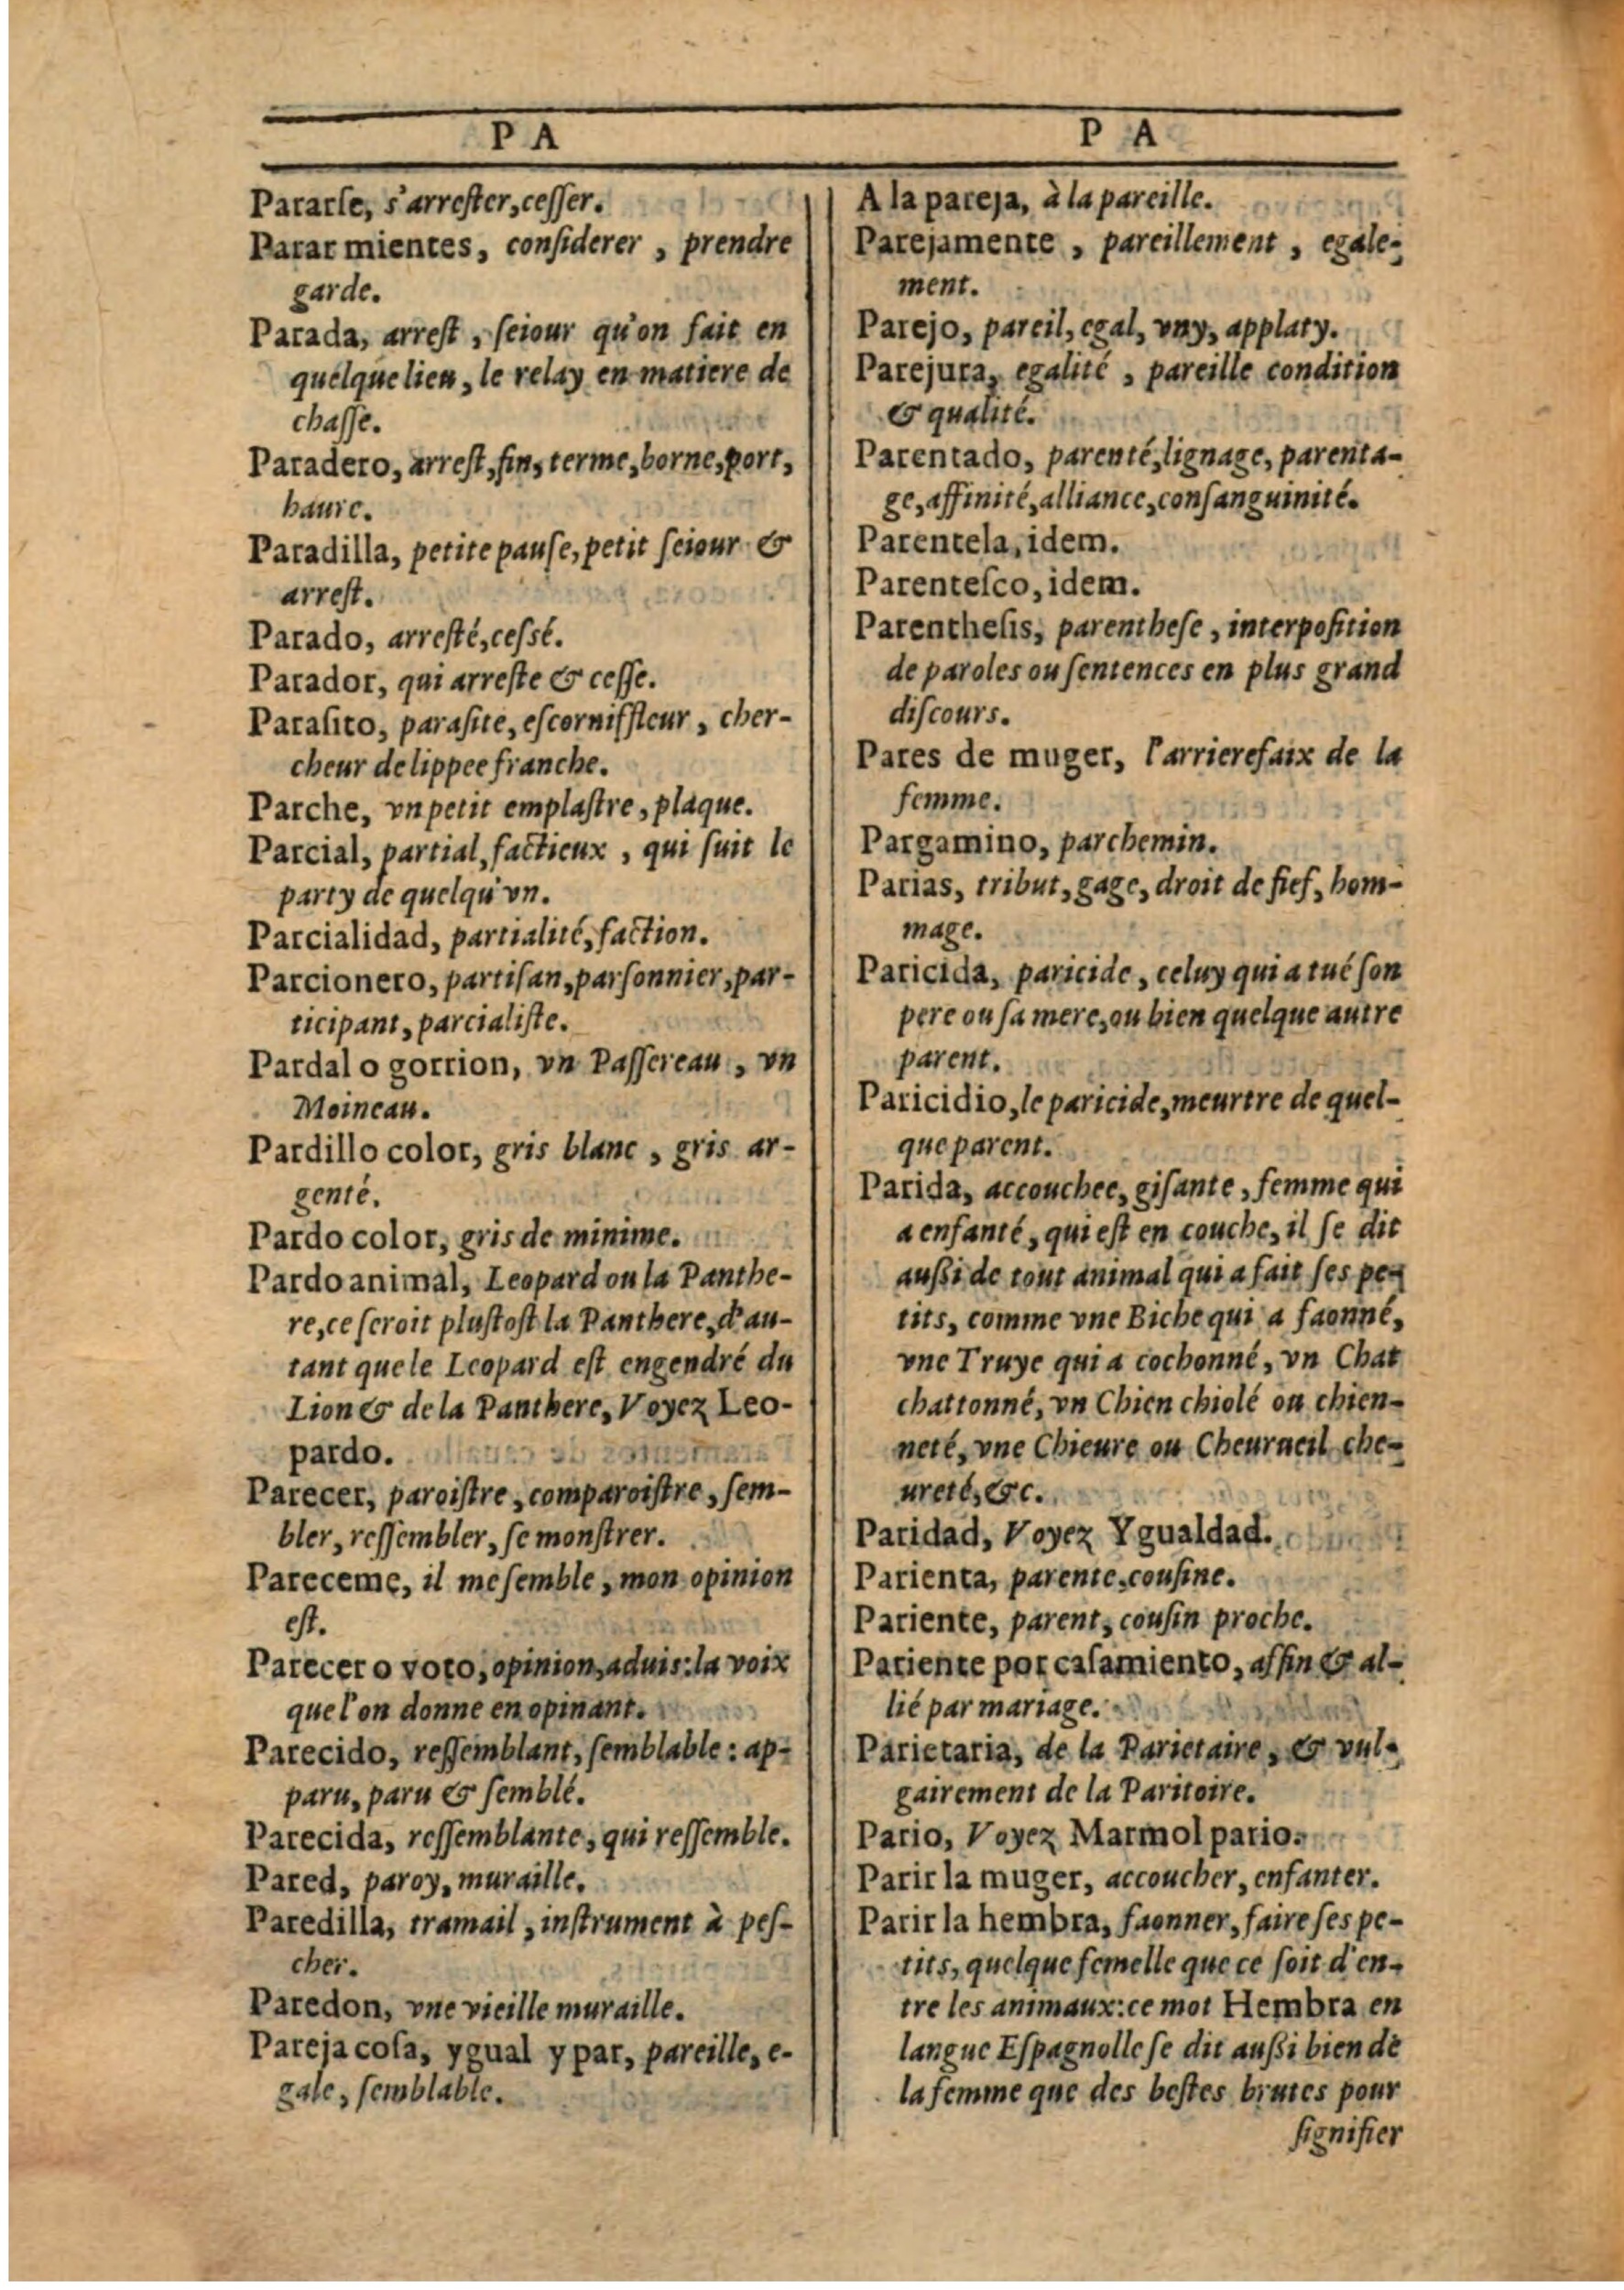 P A
Pararſe, s'arreſter,ceſſer.
Parar mientes, conſiderer, prendre
garde.
Parada, arreſt, ſeiour qu'on fait en
quelque lieu, le relay en matiere de
chaſſe.
Paradero, arreſt,fin, terme,borne,port,
haure.
Paradilla, petite pauſe,petit ſeiour &
arreſt.
Parado, arreſté,ceſsé.
Parador, qui arreſte & ceſſe.
Paraſito, paraſite, eſcorniffleur, cher-
cheur de lippee franche.
Parche, vn petit emplaſtre, plaque.
Parcial, partial, factieux, qui ſuit le
party de quelqu'vn.
Parcialidad, partialité, faction.
Parcionero, partiſan,parſonnier,par-
ticipant, parcialiſte.
Pardal o gorrion, vn Paſſereau, vn
Moineau.
Pardillo color, gris blanc, gris ar-
genté.
Pardo color, gris de minime.
Pardo animal, Leopard ou la Panthe-
re,ce ſeroit pluſtoſt la Panthere, d'au-
tant que le Leopard eſt engendré du
Lion & de la Panthere, Voyez Leo-
pardo.
Parecer, paroiſtre, comparoiſtre, ſem-
bler, reſſembler, ſe monſtrer.
Pareceme, il me ſemble, mon opinion
eſt.
Parecer o voto, opinion,aduis:la voix
que l'on donne en opinant.
Parecido, reſſemblant, ſemblable: ap-
paru, paru & ſemblé.
Parecida, reſſemblante, qui reſſemble.
Pared, paroy, muraille.
Paredilla, tramail, inſtrument à peſ-
cher.
Paredon, vne vieille muraille.
Pareja coſa, ygual y par, pareille, e-
gale, ſemblable.
P A
A la pareja, à la pareille.
Parejamente, pareillement, egale-
ment.
Parejo, pareil, egal, vny, applaty.
Parejura, egalité, pareille condition
& qualité.
Parentado, parenté,lignage, parenta-
ge,affinité,alliance,conſanguinité.
Parentela, idem.
Parenteſco, idem.
Parentheſis, parentheſe, interpoſition
de paroles ou ſentences en plus grand
diſcours.
Pares de muger, l'arrierefaix de la
femme.
Pargamino, parchemin.
Parias, tribut, gage, droit de fief, hom-
mage.
Paricida, paricide, celuy qui a tué ſon
pere ou ſa mere,ou bien quelque autre
parent.
Paricidio,le paricide,meurtre de quel-
que parent.
Parida, accouchee, giſante, femme qui
a enfanté, qui eſt en couche, il ſe dit
auſſi de tout animal qui a fait ſes pe-
tits, comme vne Biche qui a faonné,
vne Truye qui a cochonné, vn Chat
chattonné, vn Chien chiolé ou chien-
neté, vne Chieure ou Cheurueil che-
ureté, &c.
Paridad, Voyez Ygualdad.
Parienta, parente,couſine.
Pariente, parent, couſin proche.
Pariente por caſamiento, affin & al-
lié par mariage.
Parietaria, de la Parietaire, & vul-
gairement de la Paritoire.
Pario, Voyez Marmol pario.
Parir la muger, accoucher, enfanter.
Parir la hembra, faonner, faire ſes pe-
tits, quelque femelle que ce ſoit d'en-
tre les animaux:ce mot Hembra en
langue Eſpagnolle ſe dit auſſi bien de
la femme que des beſtes brutes pour
ſignifier